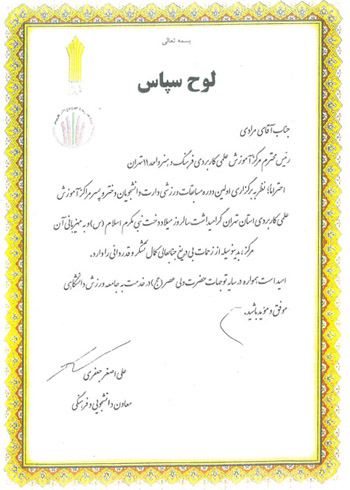 بسمه تعالی
لوح سپاس
جناب آقای مرادی
رئیس محترم مرکز آموزش علمی کاربردی فرهنگ و هنر واحد ۱۱ تهران
احتراماً، نظر به برگزاری اولین دوره مسابقات ورزشی دارت دانشجویان دختر و پسر مراکز آموزش
علمی کاربردی استان تهران گرامیداشت سالروز میلاد دخت نبی مکرم اسلام (س) و به میزبانی آن
مرکز، بدینوسیله از زحمات بی دریغ جنابعالی کمال تشکر و قدردانی را دارد.
امید است همواره در سایه توجهات حضرت ولی عصر (عج) در خدمت به جامعه ورزش دانشگاهی
موفق و مؤید باشید.
علی اصغر جعفری
معاون دانشجویی و فرهنگی